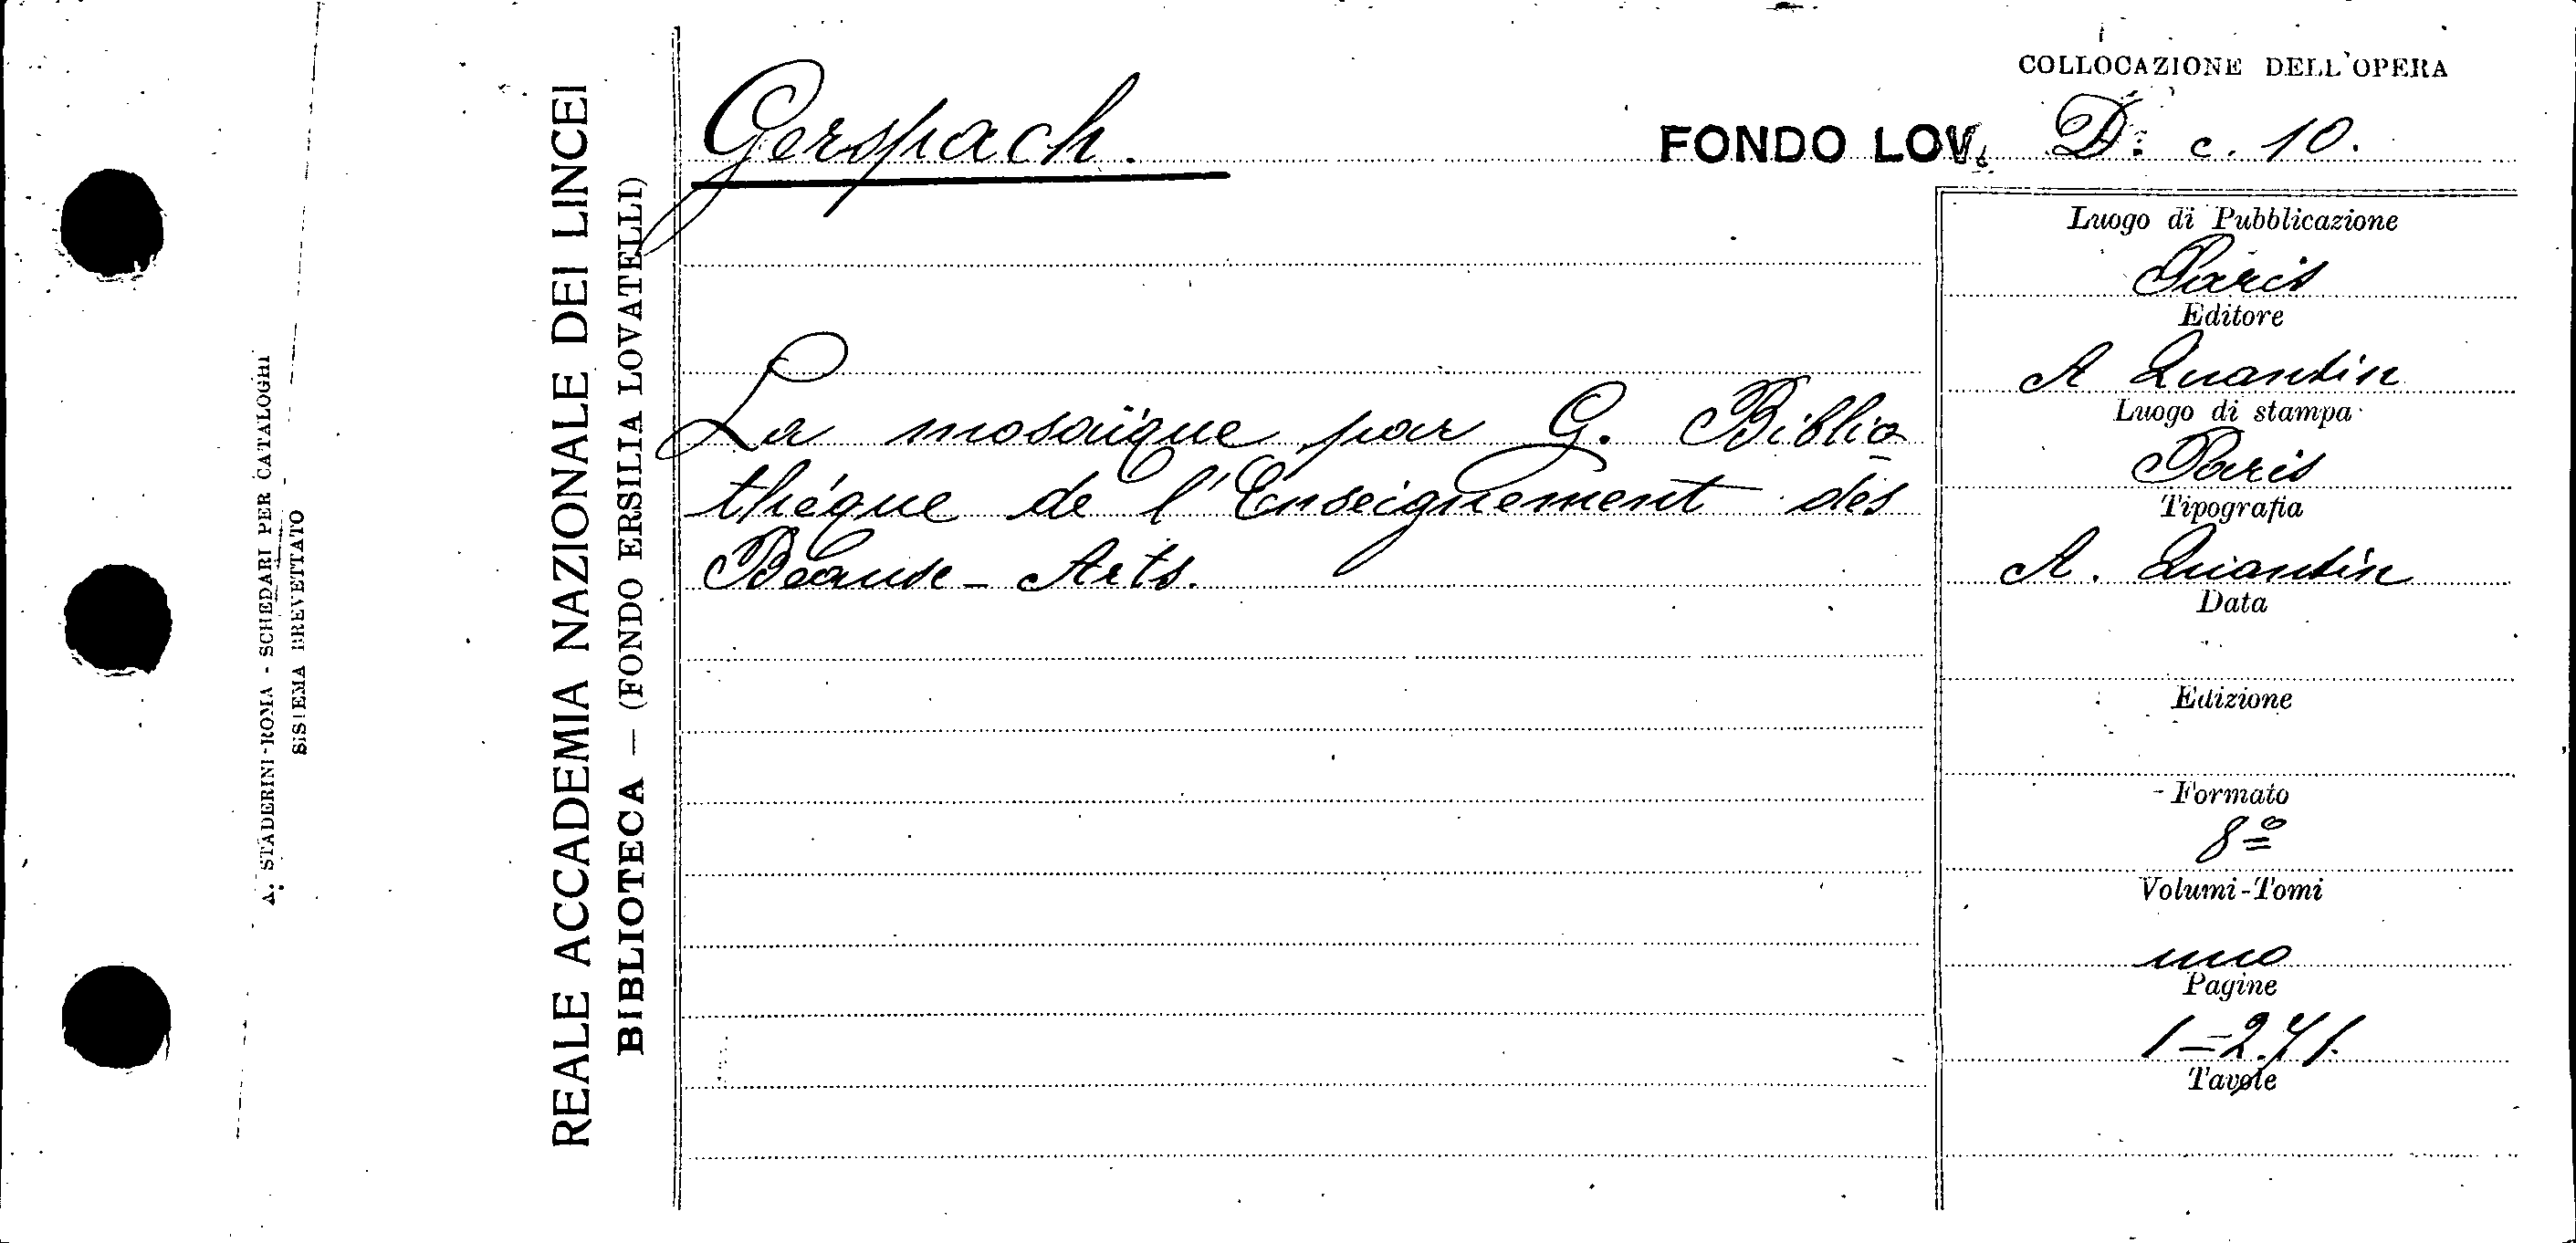 A. STADERINI-ROMA - SCHEDARI PER CATALOGHI
SISTEMA BREVETTATO
REALE ACCADEMIA NAZIONALE DEI LINCEI
BIBLIOTECA — (FONDO ERSILIA LOVATELLI)
COLLOCAZIONE DELL'OPERA
Gerspach.
FONDO LOV. D. c. 10.
La mosaïque par G. Biblio-
théque de l'Enseignement des
Beaux-Arts.
Luogo di Pubblicazione
Paris
Editore
A Quantin
Luogo di stampa
Paris
Tipografia
A. Quantin
Data
Edizione
Formato
8º
Volumi-Tomi
uno
Pagine
1-271.
Tavole